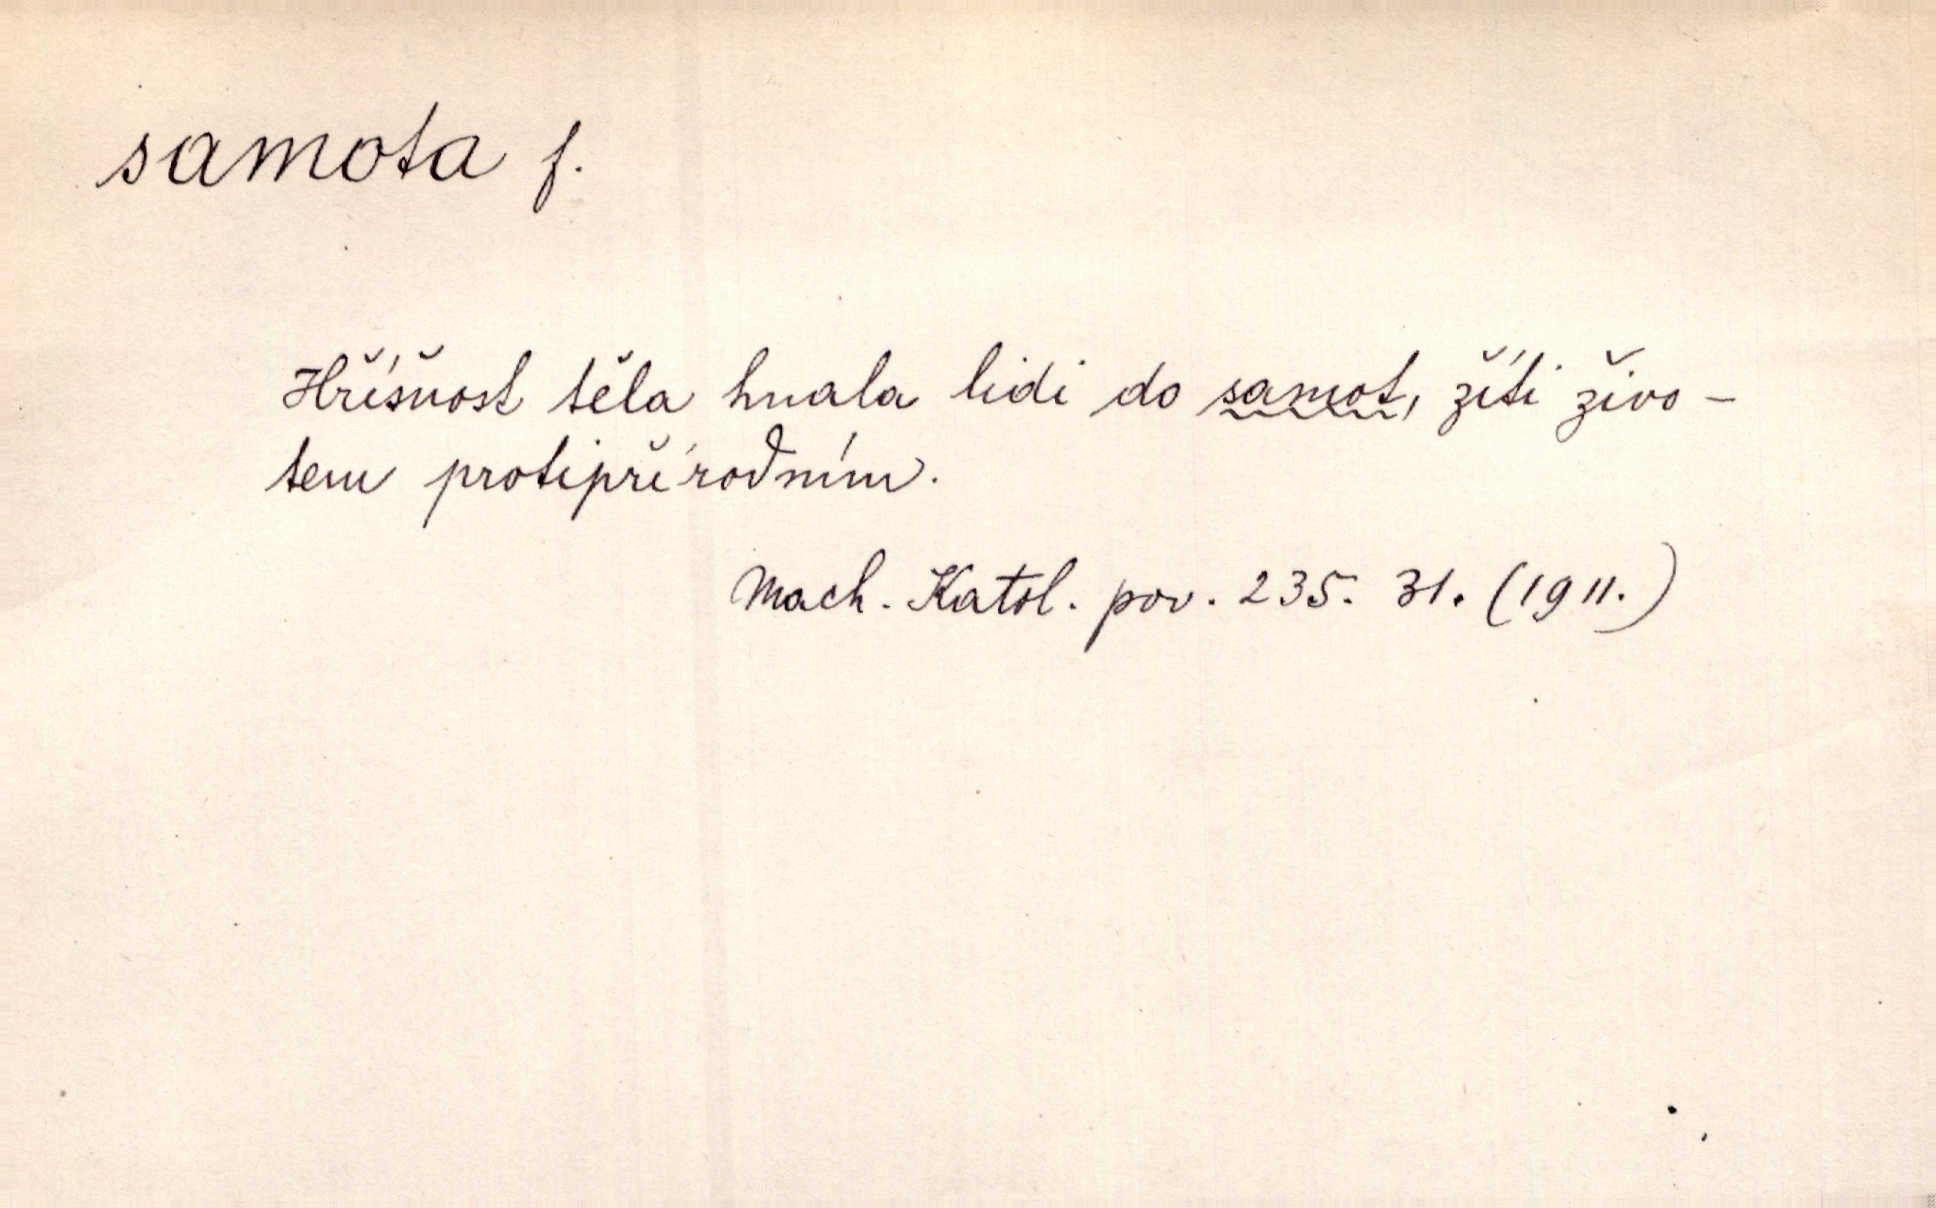 samota f.
Hříšnost těla hnala lidi do samot, žíti živo-
tem protipřírodním.
Mach. Katol. pov. 235. 31. (1911.)